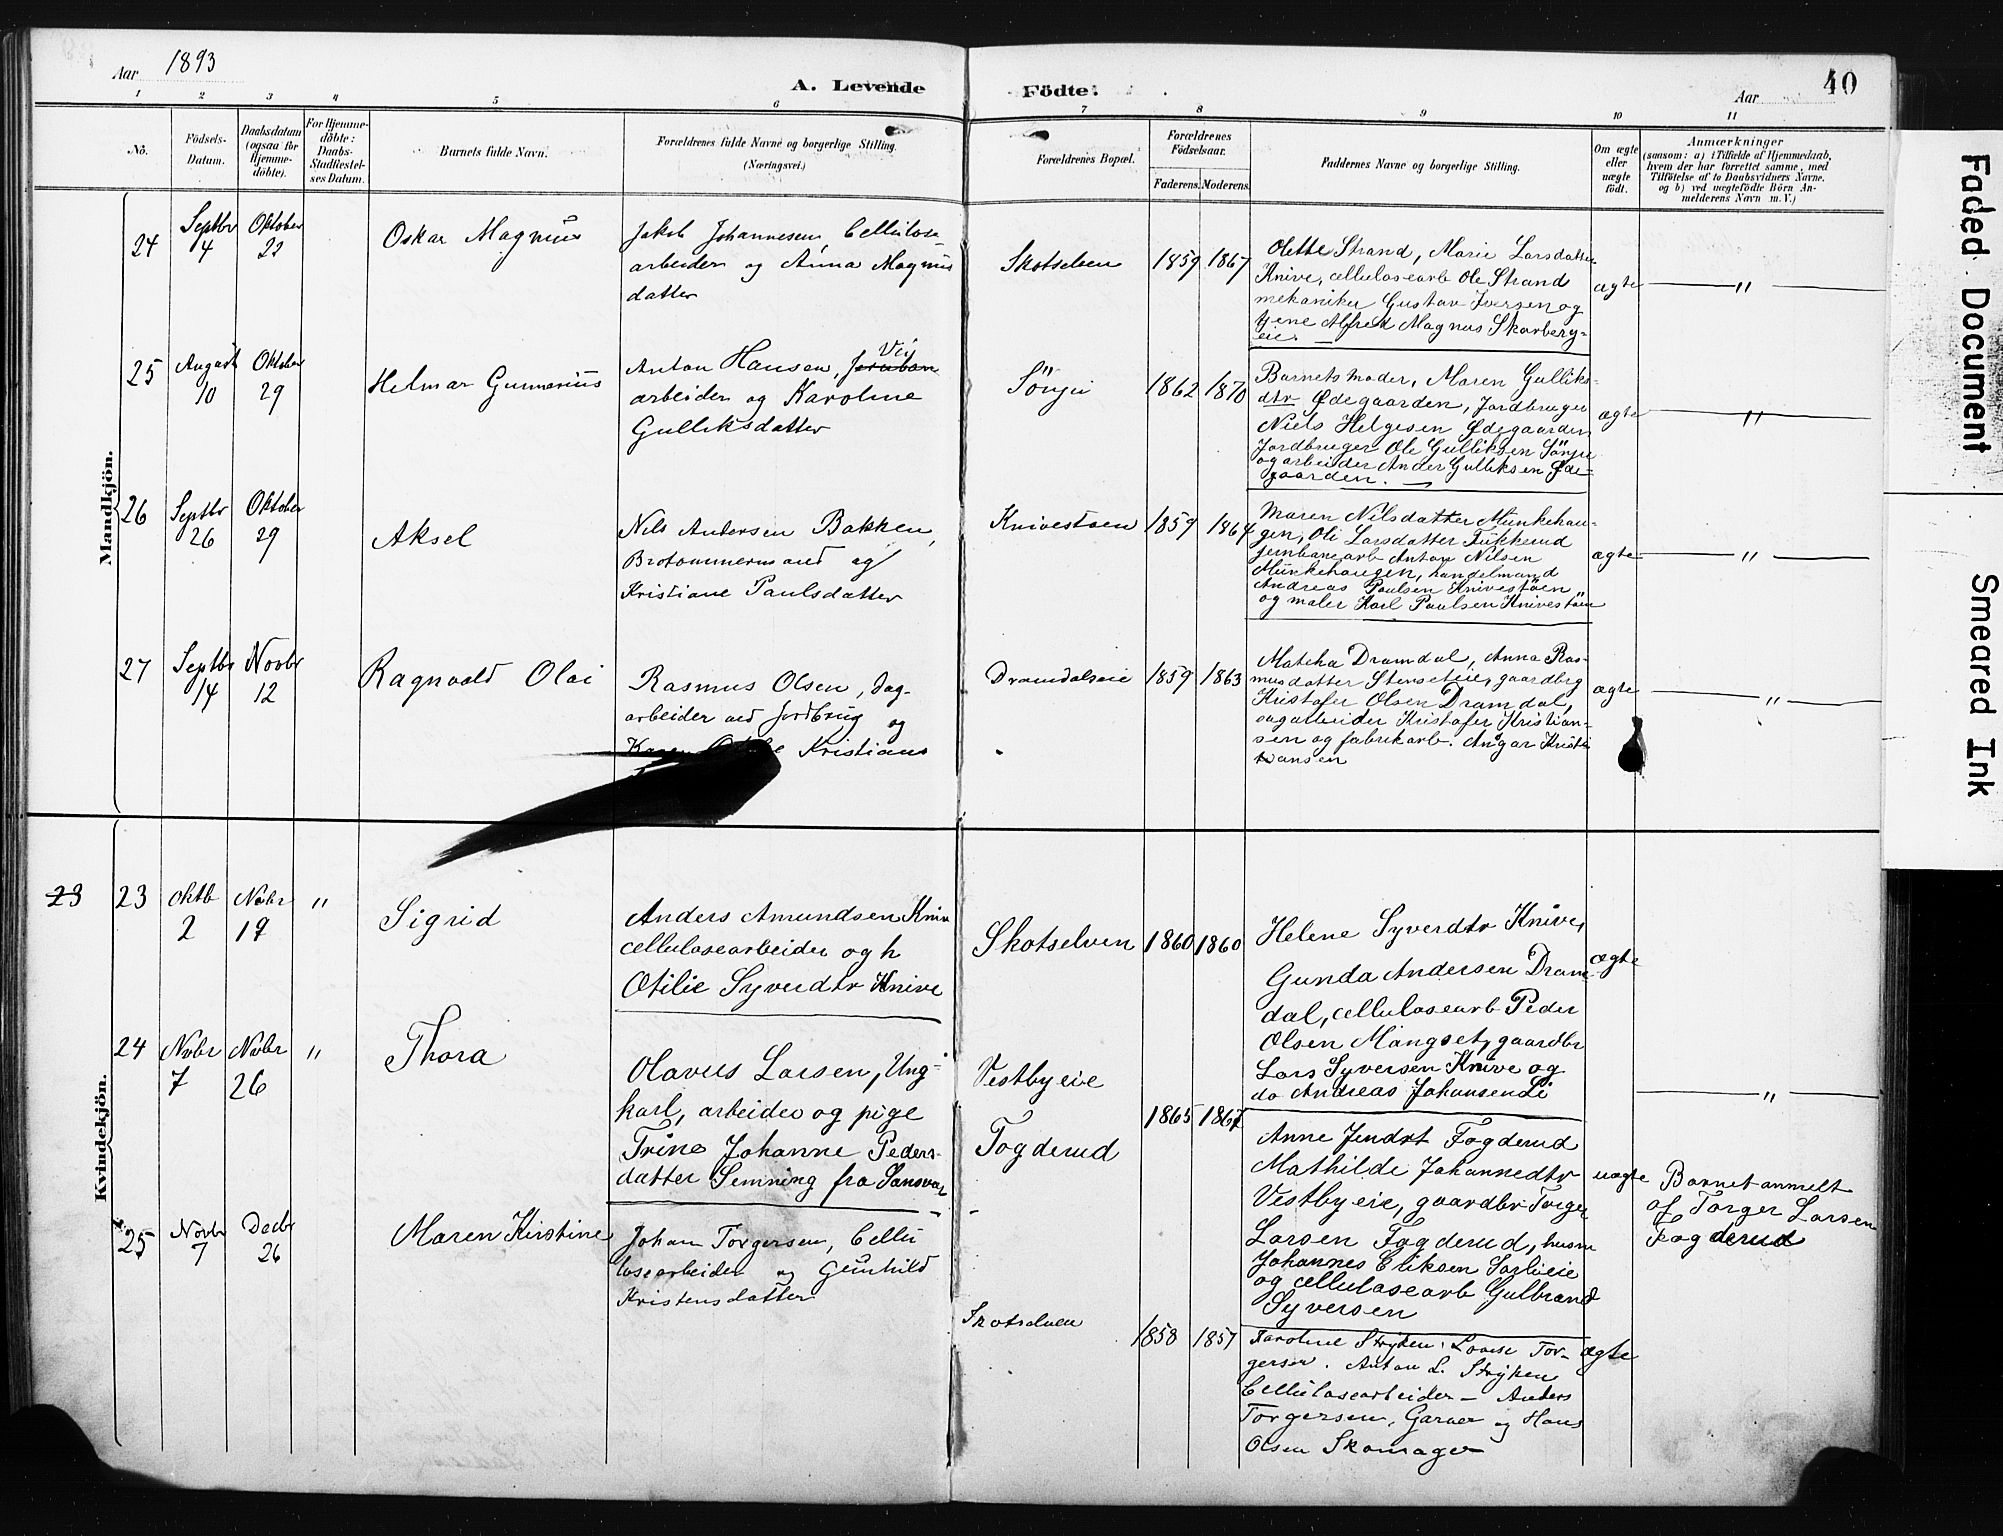 Aar 1893
A. Levende Födte.
Aar
40
1 2 3 4 5 6 7 8 9 10 11
Nö.
Födsels-Datum.
Daabsdatum (ogsaa for Hjemme-döbte).
For Hjemme-döbte: Daabs-Stadfæstel-ses Datum.
Barnets fulde Navn.
Forældrenes fulde Navne og borgerlige Stilling. (Næringsvei.)
Forældrenes Bopæl.
Forældrenes Födselsaar.
Faderens. Moderens.
Faddernes Navne og borgerlige Stilling.
Om ægte eller uægte födt.
Anmærkninger
(saasom: a) i Tilfælde af Hjemmedaab,
hvem der har forrettet samme, med
Tilföielse af to Daabsvidners Navne,
og b) ved uægtefödte Börn An-
melderens Navn m. V.)
Mandkjön.
24 Septbr 4 Oktober 22 Oskar Magnus
Jakob Johannesen, Cellulose-
arbeider og Anna Magnus
datter
Skotselven 1859 1867
Olette Strand, Marie Larsdatter
Knive, cellulosearb Ole Strand
mekaniker Gustav Iversen og
tjene Alfred Magnus Skarberg-
eie.
ægte "
25 August 10 Oktober 29 Helmar Gunnerius
Anton Hansen, Vei
arbeider og Karoline
Gulliksdatter
Sönju 1862 1870
Barnets moder, Maren Gulliks-
dtr Ødegaarden, Jordbruger
Niels Helgesen Ødegaarden
Jordbruger Ole Gulliksen Sönju
og arbeider Ander Gulliksen Øde-
gaarden.
ægte "
26 Septbr 26 Oktober 29 Aksel
Nels Andersen Bakken,
og
Kristiane Paulsdatter
Knivestøen 1859 1864
Maren Nilsdatter Munkehau-
gen, Oli Larsdatter
jernbanearb Anton Nilsen
Munkehaugen, handelmand
Andreas Paulsen Knivestöen
og maler Karl Paulsen Knivestöen
ægte "
27 Septbr 14 Novbr 12 Ragnvald Olai
Rasmus Olsen, dag-
arbeider ved Jordbrug og
Kristians
Dramdalseie 1859 1863
Matéa Dramdal, Anna Ras-
musdatter Stenseteie, gaardbrg
Kristofer Olsen Dramdal,
sagarbeider Kristofer Kristian-
sen og fabrikarb. Ansgar Kristi
ansen
ægte "
Kvindekjön.
23 23 Oktb 2 Nobr 19 " Sigrid
Anders Amundsen Kniv
cellulosearbeider og h
Otilie Syverdtr Knive
Skotselven 1860 1860
Helene Syverdtr Knive,
Gunda Andersen Dram-
dal, cellulosearb Peder
Olsen Mangset, gaardbr
Lars Syversen Knive og
do Andreas Johansen Li
ægte
24 Nvbr 7 Nvbr 26 " Thora
Olavus Larsen, Ung-
karl, arbeider og pige
Trine Johanne Peders-
datter Semning fra Sansvær
Vestbyeie
Fogderud
1865 1867
Anne Jensdt Fogderud
Mathilde Johannedtr
Vestbyeie, gaardbr Torger
Larsen Fogderud, husm
Johannes Eriksen Sorlieie
og cellulosearb Gulbrand
Syversen
uægte "
Barnet anmelt
af Torger Larsen
Fogderud
25 Novbr 7 Decbr 26 Maren Kirstine
Johan Torgersen, Cellu
losearbeider og Gunhild
Kristensdatter
Skotselven 1858 1857
Karoline Stryken, Lovise Tor-
gersen. Anton L. Stryken
Cellulosearbeider - Anders
Torgersen, Garver og Hans
Olsen Skomager
ægte
Faded Document
Smeared Ink